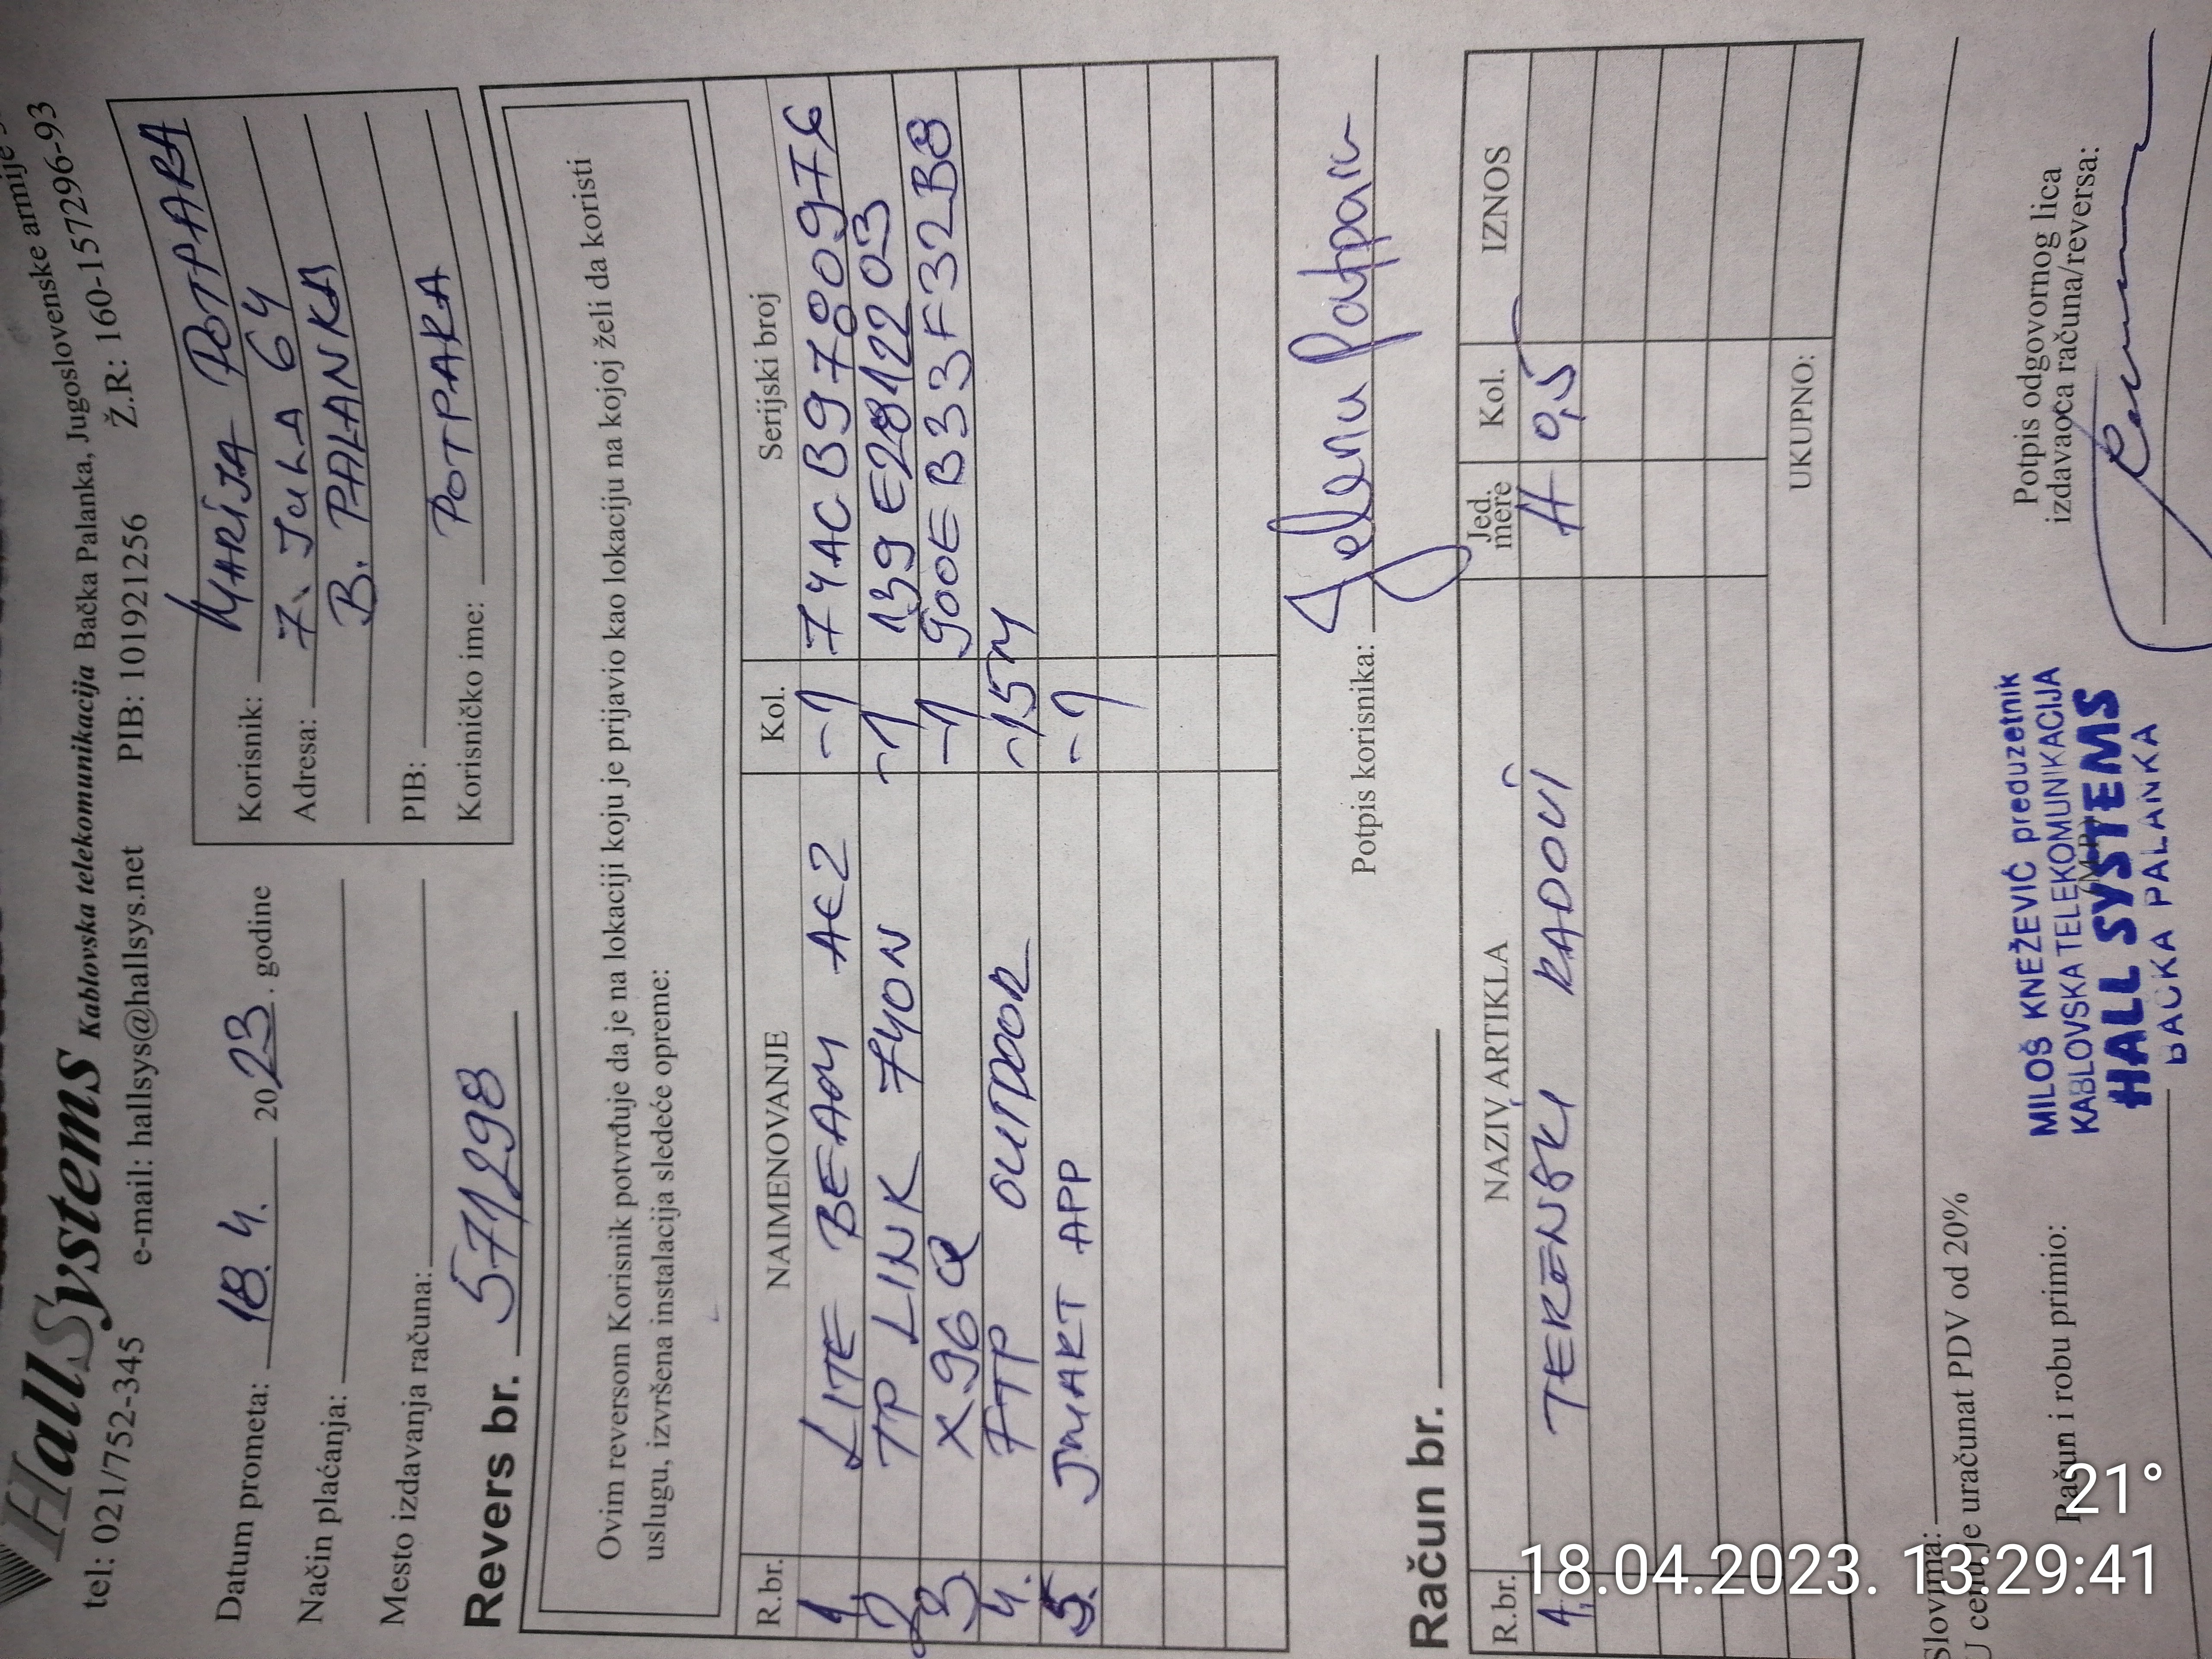 HallSystems Kablovska telekomunikacija Bačka Palanka, Jugoslovenske armije
tel: 021/752-345 e-mail: hallsys@hallsys.net PIB: 101921256 Ž.R: 160-157296-93
Datum prometa: 18. 4. 2023. godine
Način plaćanja:
Mesto izdavanja računa:
Korisnik: MARIJA POTPARA
Adresa: 7. JULA 64
B. PALANKA
PIB:
Korisničko ime: POTPARA
Revers br. 571298
Ovim reversom Korisnik potvrđuje da je na lokaciji koju je prijavio kao lokaciju na kojoj želi da koristi
uslugu, izvršena instalacija sledeće opreme:
R.br. NAIMENOVANJE Kol. Serijski broj
1 LITE BEAM AC2 -1 74ACB9780976
2 TP LINK 740N -1 139E2812203
3. X96Q -1 900EB33F32B8
4. FTP OUTDOOR -15M
5. SMART APP -1
Potpis korisnika: Jelena Potpara
Račun br.
R.br. NAZIV ARTIKLA Jed. mere Kol. IZNOS
1. TERENSKI RADOVI H 0,5
UKUPNO:
Slovima:
U cenu je uračunat PDV od 20%
Račun i robu primio:
(M.P.)
MILOŠ KNEŽEVIĆ preduzetnik
KABLOVSKA TELEKOMUNIKACIJA
HALL SYSTEMS
BAČKA PALANKA
Potpis odgovornog lica
izdavaoca računa/reversa:
21°
18.04.2023. 13:29:41